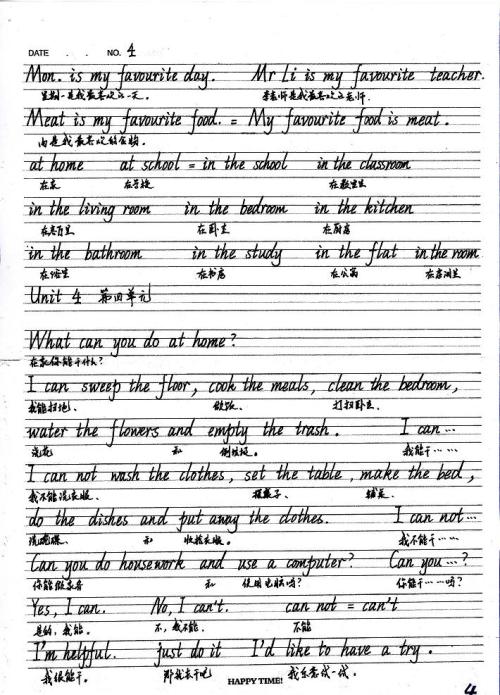 DATE . . NO. 4
Mon. is my favourite day. Mr Li is my favourite teacher.
星期一是我最喜欢的一天。 李老师是我最喜欢的老师.
Meat is my favourite food. = My favourite food is meat.
肉是我最喜欢的食物。
at home at school = in the school in the classroom
在家 在学校 在教室里
in the living room in the bedroom in the kitchen
在客厅里 在卧室 在厨房
in the bathroom in the study in the flat in the room
在浴室 在书房 在公寓 在房间里
Unit 4 第四单元
What can you do at home?
在家你能干什么?
I can sweep the floor, cook the meals, clean the bedroom,
我能扫地、 做饭、 打扫卧室、
water the flowers and empty the trash. I can…
浇花 和 倒垃圾。 我能干……
I can not wash the clothes, set the table, make the bed,
我不能洗衣服、 摆桌子、 铺床、
do the dishes and put away the clothes. I can not…
洗碗碟、 和 收拾衣服。 我不能干…
Can you do housework and use a computer? Can you…?
你能做家务 和 使用电脑吗? 你能干……吗?
Yes, I can. No, I can't. can not = can't
是的,我能。 不,我不能. 不能
I'm helpful. just do it I'd like to have a try.
我很能干。 那就去干吧 我乐意试一试。
HAPPY TIME!
4